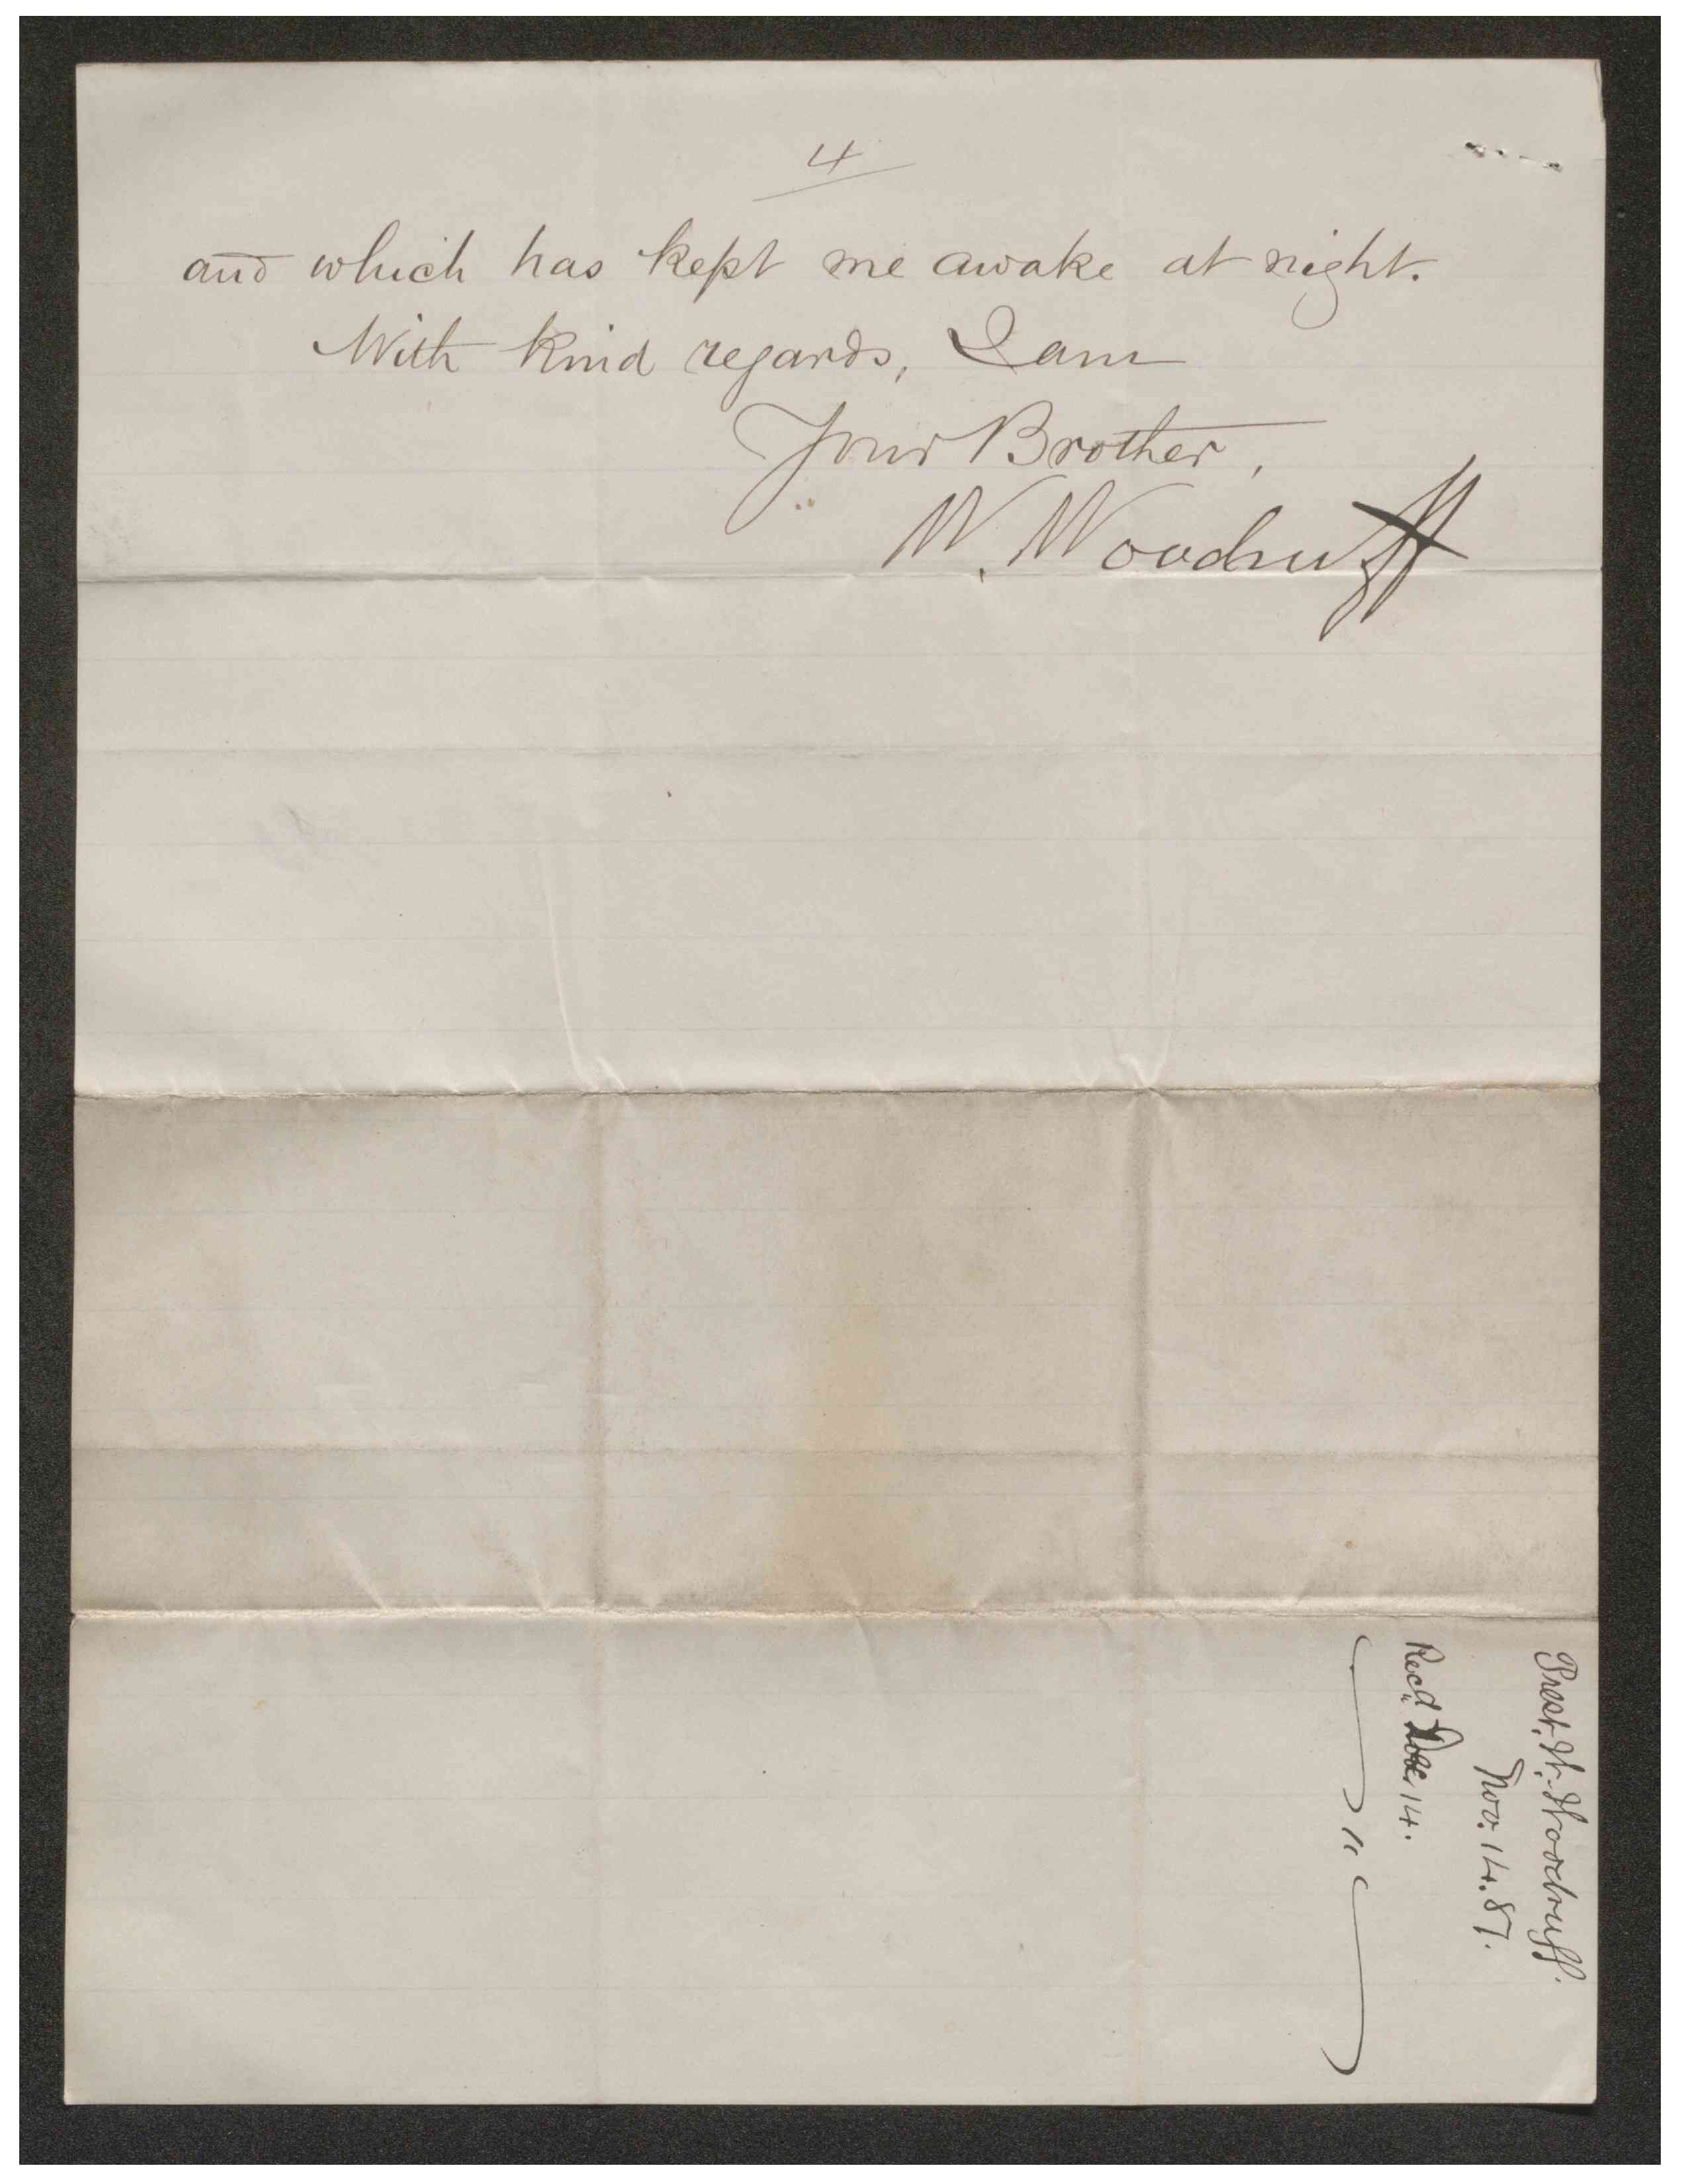 4
and which has kept me awake at night.
With kind regards, I am
Your Brother,
W. Woodruff
Prest. W. Woodruff.
Nov. 14. 87.
Recd. 14.